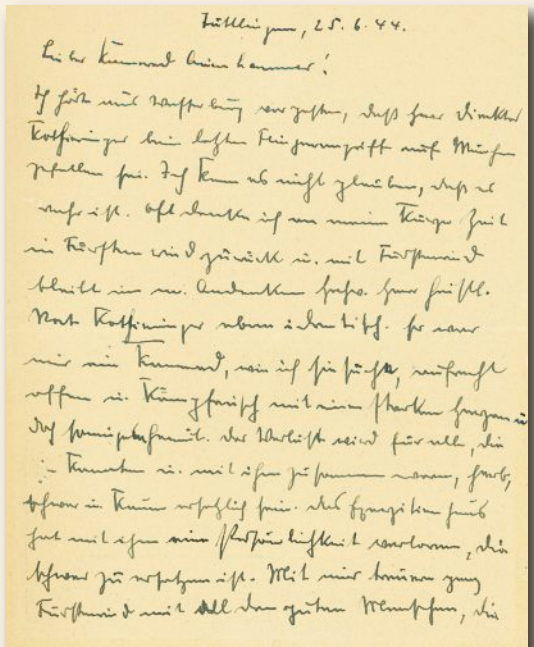 Tuttlingen, 25.6.44.
Lieber Kamerad
Ich hörte aus Wasserburg vorgestern, daß Herr Direktor
beim letzten Fliegerangriff auf München
gefallen sei. Ich kann es nicht glauben, daß es
wahr ist. Oft denke ich an meine kurze Zeit
in Fürstenried zurück u. mit Fürstenried
bleibt in m. Andenken hochw. Herr Geistl.
Rat eben identisch. Er war
mir ein Kamerad, wie ich sie suchte, aufrecht
offen u. kämpferisch mit einem starken Herzen u
doch Der Verlust wird für alle, die
kannten u. mit ihm zusammen waren, herb,
schwer u. kaum ersetzlich sein. Das Exerzitienhaus
hat mit ihm eine Persönlichkeit verloren, die
schwer zu ersetzen ist. Mit mir trauern ganz
Fürstenried mit all den guten Menschen, die